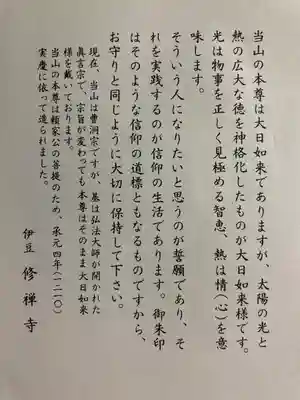 当山の本尊は大日如来でありますが、太陽の光と
熱の広大な徳を神格化したものが大日如来様です。
光は物事を正しく見極める智恵、熱は情(心)を意
味します。
そういう人になりたいと思うのが誓願であり、そ
れを実践するのが信仰の生活であります。御朱印
はそのような信仰の道標ともなるものですから、
お守りと同じように大切に保持して下さい。
現在、当山は曹洞宗ですが、基は弘法大師が開かれた
眞言宗で、宗旨が変わっても本尊はそのまま大日如来
様を戴いております。
当山の本尊は頼家公の菩提のため、承元四年(一二一〇)
実慶に依って造られました。
伊豆 修禅寺